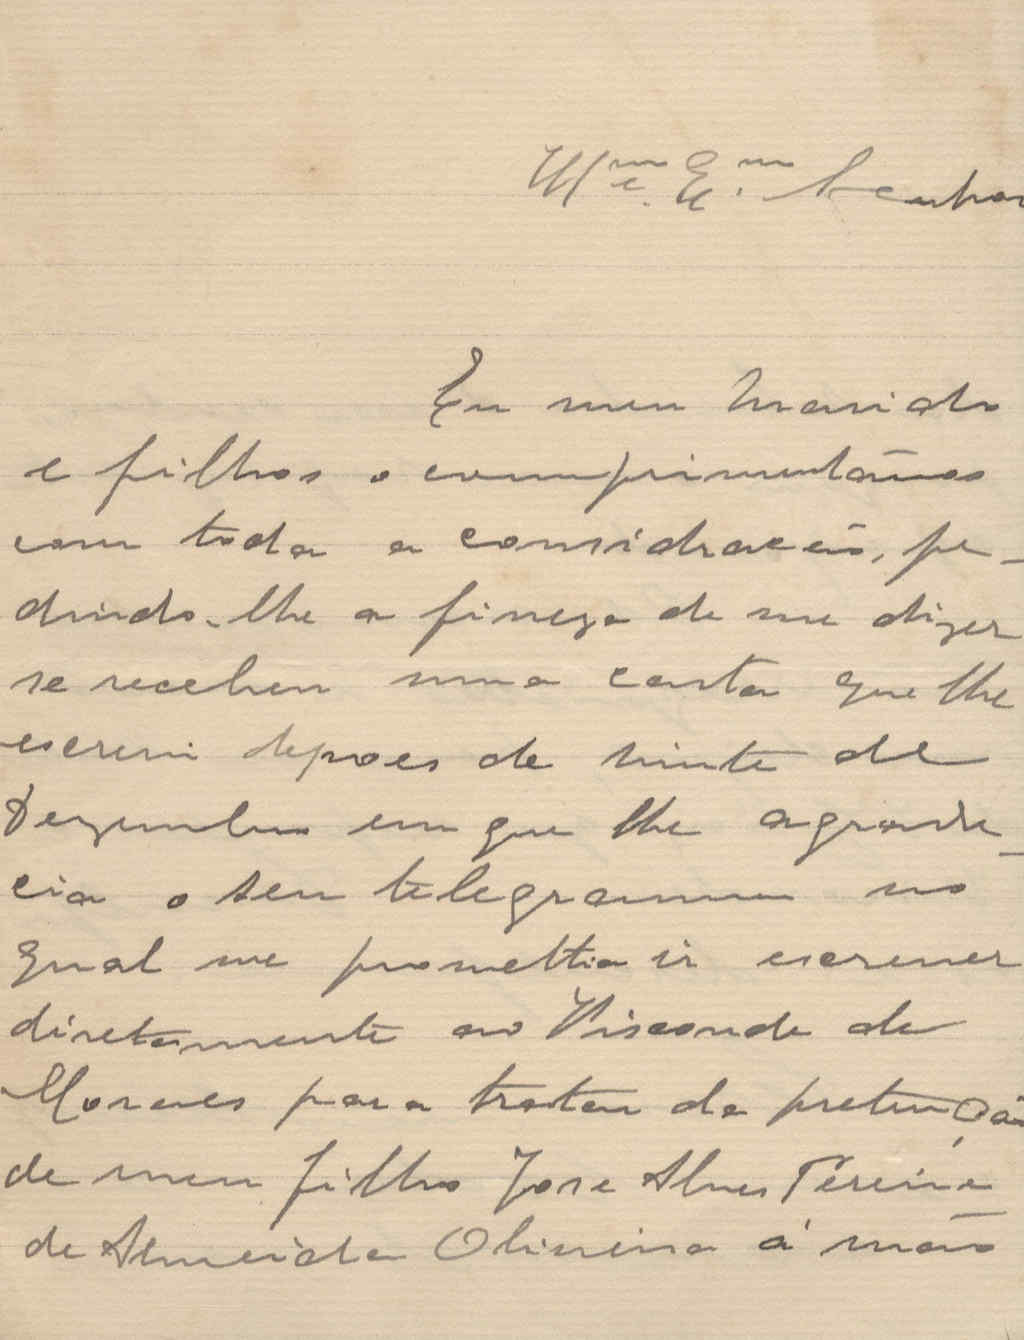 Illmo. Exmo. Senhor
Eu meu Marido
e filhos o comprimentãmos
com toda a considracão, pe-
dindo-lhe a fineza de me dizer
se recebeu uma carta que lhe
escrevi depoes de vinte de
Dezembro em que lhe agrade-
cia o seu telegramma no
qual me promettia ir escrever
diretamente ao Visconde de
Moraes para tratar da pretenção
de meu filho Jose Alves Pereira
de Almeida Oliveira á mão